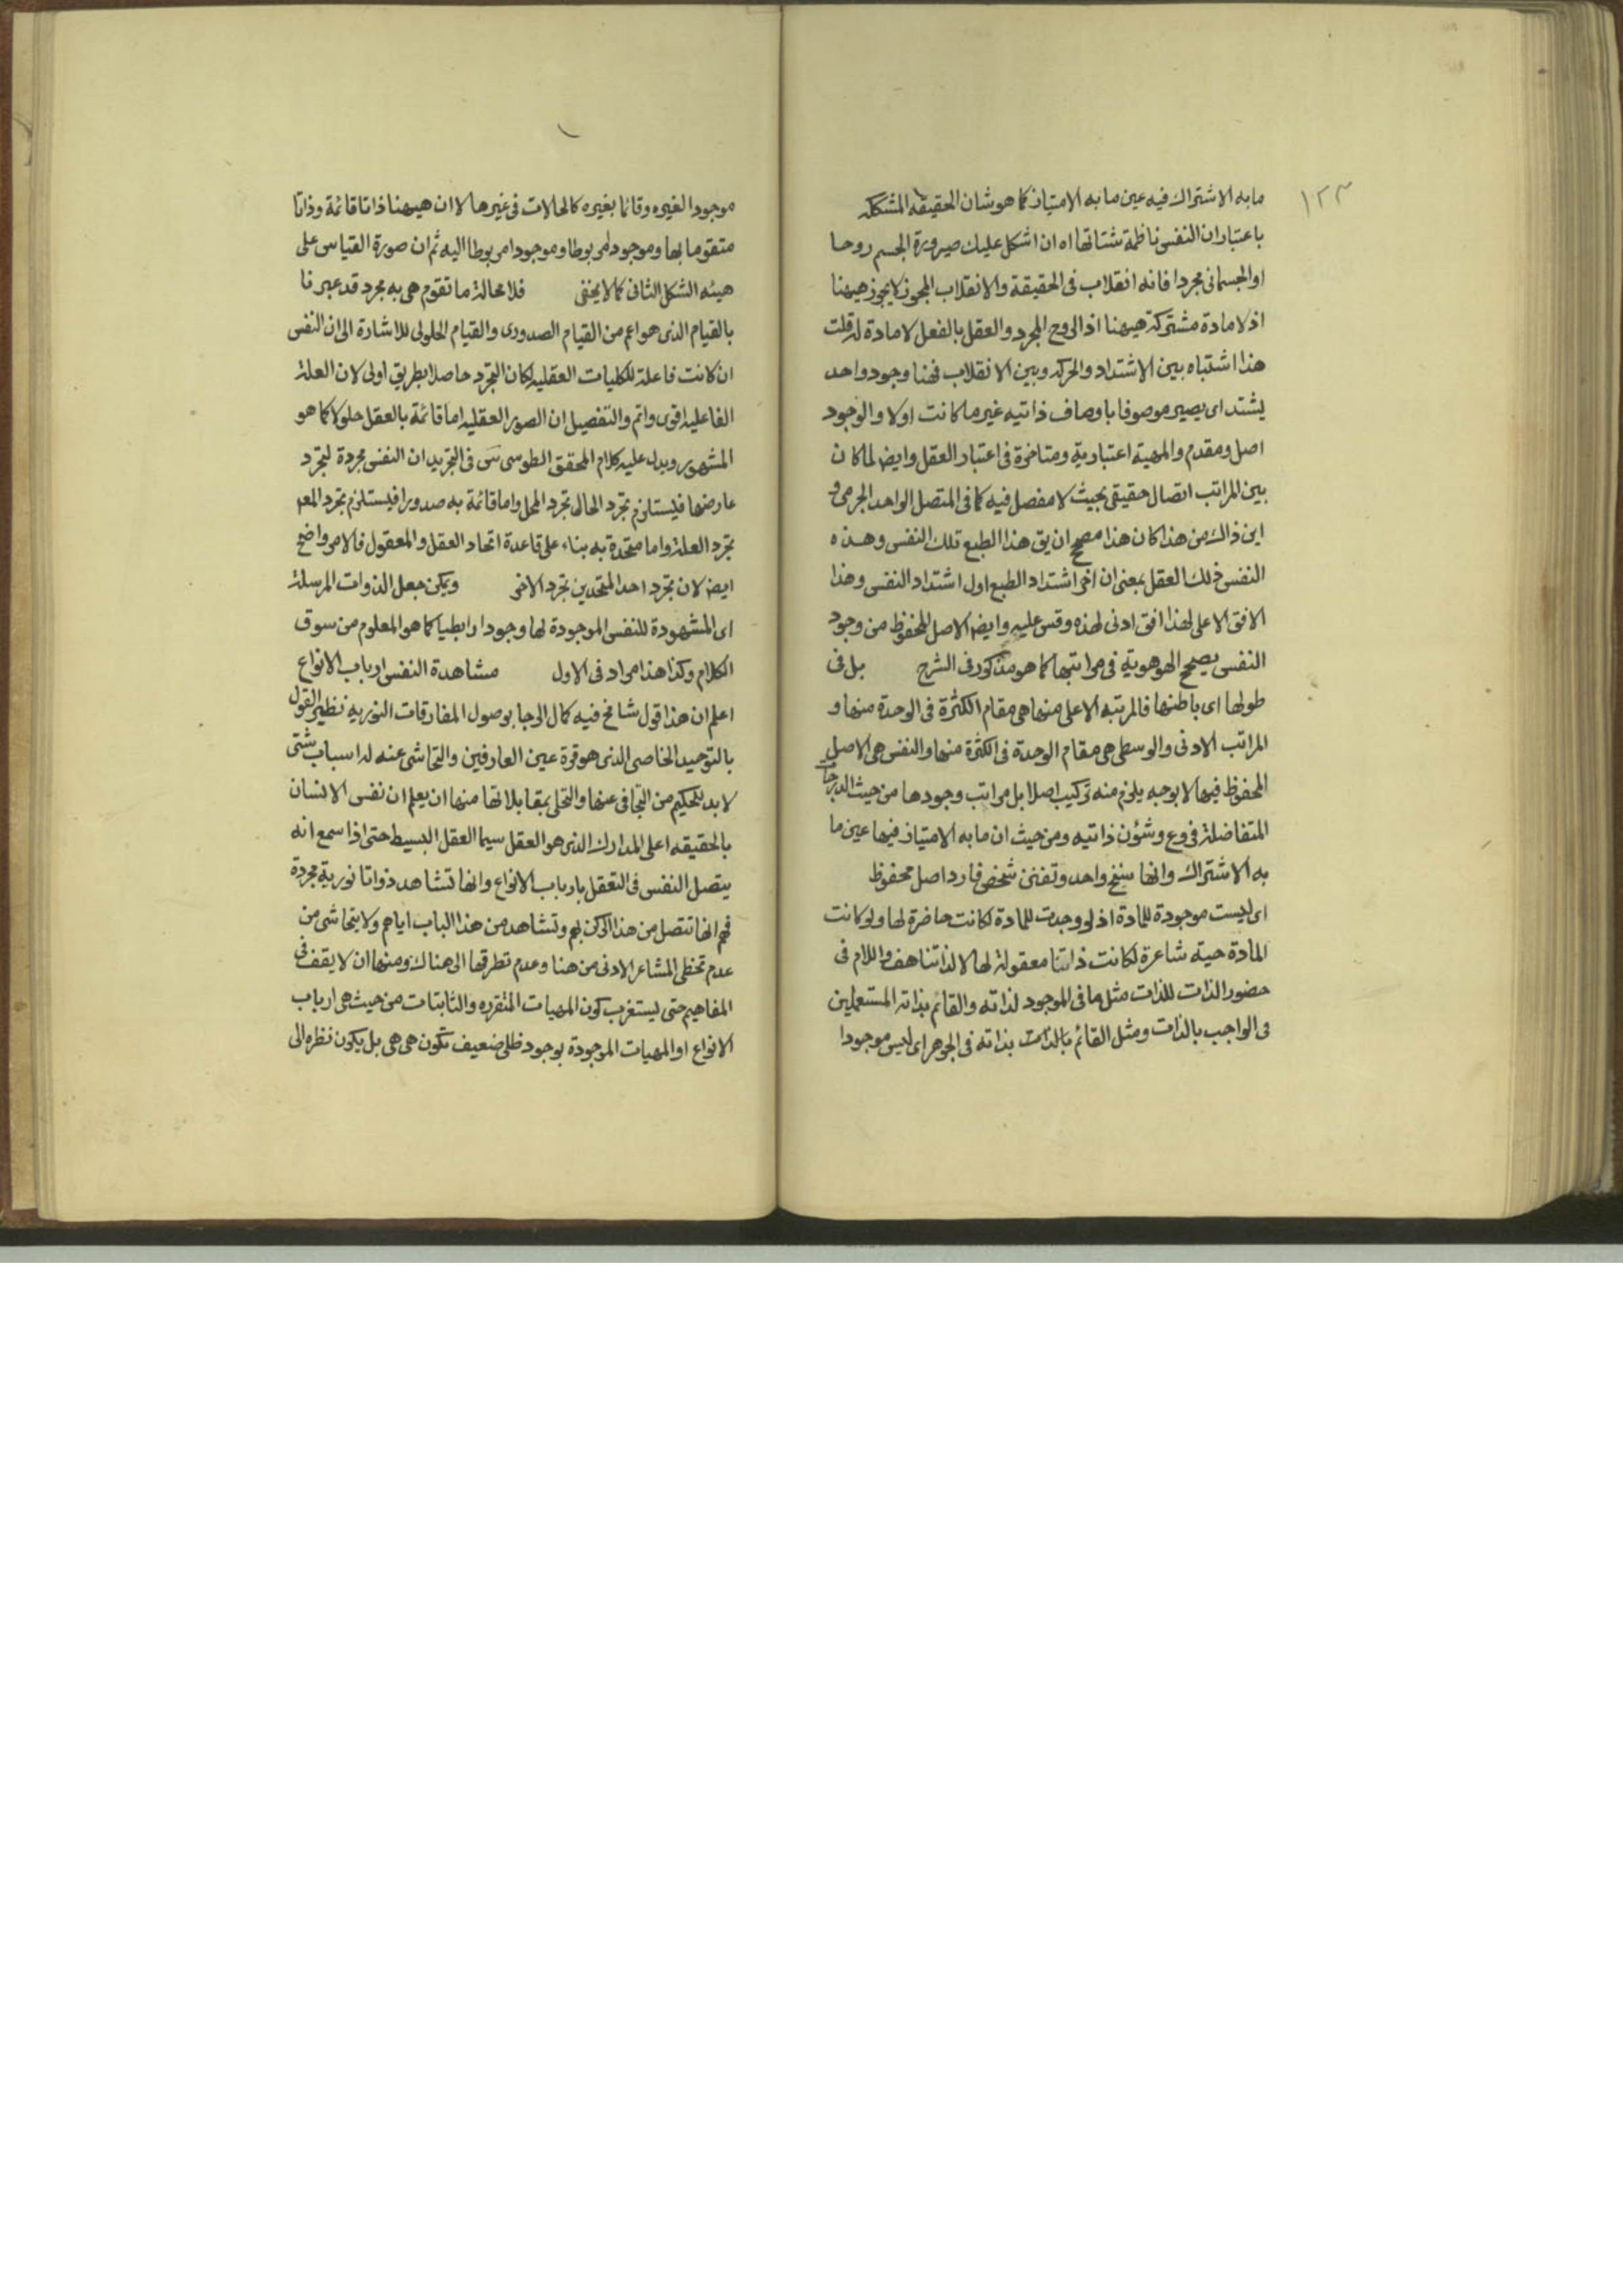 ١٢٣
مابه الاشتراك فيه عين مابه الامتياز كما هو شان الحقيقه المشككه
باعتبار ان النفس ناظمة شتاتها اه ان اشكل عليك صيرورة الجسم روحا
او الجسمانى مجردا فانه انقلاب فى الحقيقة والانقلاب المجوز لا يجوز هيهنا
اذ لا مادة مشتركة هيهنا اذ الروح المجرد والعقل بالفعل لا مادة له قلت
هذا اشتباه بين الاشتداد والحركه وبين الانقلاب فهنا وجود واحد
يشتد اى يصير موصوفا باوصاف ذاتيه غير ما كانت اولا والوجود
اصل ومقدم والمهية اعتبارية ومتاخرة فى اعتبار العقل وايضا لما كان
بين المراتب اتصال حقيقى بحيث لا مفصل فيه كما فى المتصل الواحد الجرمى و
اين ذاك من هذا كان هذا مصحح ان يق هذا الطبع تلك النفس وهذه
النفس ذلك العقل بمعنى ان اخر اشتداد الطبع اول اشتداد النفس وهذا
الافق الاعلى لهذا افق ادنى لهذه وقس عليه وايضا الاصل المحفوظ من وجود
النفس يصحح الهوهوية فى مراتبها كما هو مذكور فى الشرح بل فى
طولها اى باطنها فالمرتبه الاعلى منها هى مقام الكثرة فى الوحدة منها و
المراتب الادنى والوسطى هى مقام الوحدة فى الكثرة منها والنفس هى الاصل
المحفوظ فيها لا بوجه يلزم منه تركيب اصلا بل مراتب وجودها من حيث الدرجات
المتفاضلة فروع وشؤن ذاتيه ومن حيث ان مابه الامتياز فيها عين ما
به الاشتراك وانها سنخ واحد وتفنن شخص فارد اصل محفوظ
اى ليست موجودة للمادة اذ لو وجدت للمادة لكانت حاضرة لها ولو كانت
المادة حية شاعرة لكانت ذاتنا معقولة لها لا لذاتنا هف واللام فى
حضور الذات للذات مثل ما فى الموجود لذاته والقائم بذاته المستعملين
فى الواجب بالذات ومثل القائم بالذات بذاته فى الجوهر اى ليس موجودا
موجودا لغيره وقائما بغيره كالحالات فى غيرها لا ان هيهنا ذاتا قائمة وذاتا
متقوما بها وموجودا مربوطا وموجودا مربوطا اليه ثم ان صورة القياس على
هيئه الشكل الثانى كما لا يخفى فلا محالة ما تقوم هى به مجرد قد عبرنا
بالقيام الذى هو اعم من القيام الصدورى والقيام الحلولى للاشارة الى ان النفس
ان كانت فاعلة للكليات العقليه لكان التجرد حاصلا بطريق اولى لان العلة
الفاعليه اقوى واتم والتفصيل ان الصور العقليه اما قائمة بالعقل حلولا كما هو
المشهور ويدل عليه كلام المحقق الطوسى س فى التجريد ان النفس مجردة لتجرد
عارضها فيستلزم تجرد الحال تجرد المحل واما قائمة به صدورا فيستلزم تجرد المعلول
تجرد العلة واما متحدة به بناء على قاعدة اتحاد العقل والمعقول فالامر واضح
ايضا لان تجرد احد المتحدين تجرد الاخر ويمكن جعل الذوات المرسلة
اى المشهودة للنفس الموجودة لها وجودا رابطيا كما هو المعلوم من سوق
الكلام وكذا هذا مراد فى الاول مشاهدة النفس ارباب الانواع
اعلم ان هذا قول شامخ فيه كمال الرجا بوصول المفارقات النوريه نظير القول
بالتوحيد الخاصى الذى هو قرة عين العارفين والتحاشى عنه له اسباب شتى
لا بد للحكيم من التجافى عنها والتحلى بمقابلاتها منها ان يعلم ان نفس الانسان
بالحقيقه اعلى المدارك الذى هو العقل سيما العقل البسيط حتى اذا سمع انه
يتصل النفس فى التعقل بارباب الانواع وانها تشاهد ذواتا نورية مجردة
فهم انها تتصل من هذا الركن بهم وتشاهد من هذا الباب اياهم ولا يتحاشى من
عدم تخطى المشاعر الادنى من هنا وعدم تطرقها الى هناك ومنها ان لا يقف فى
المفاهيم حتى يستغرب كون المهيات المتقرره والثابتات من حيث هى ارباب
الانواع او المهيات الموجودة بوجود ظلى ضعيف تكون هى هى بل يكون نظره الى